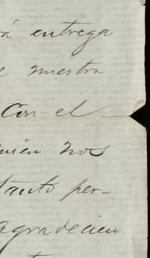 á entrega
e nuestra
Con el
uien nos
tanto per-
agradecien